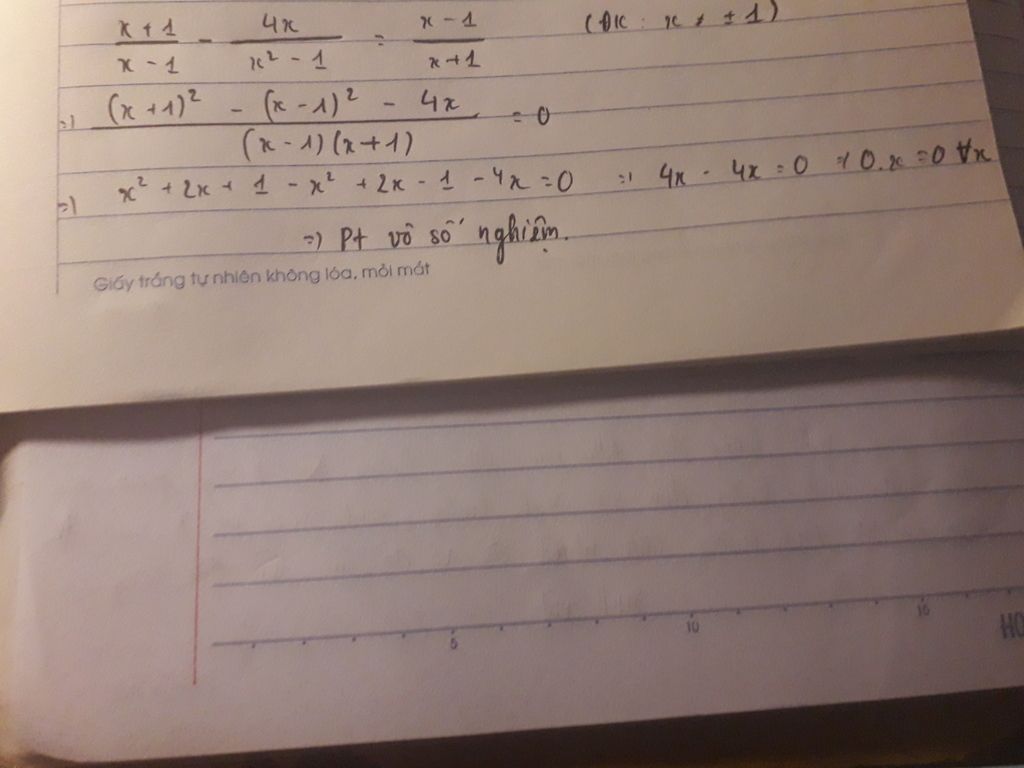 x + 1 / x - 1 - 4x / x² - 1 = x - 1 / x + 1 (ĐK : x ≠ ± 1)
=> (x + 1)² - (x - 1)² - 4x / (x - 1)(x + 1) = 0
=> x² + 2x + 1 - x² + 2x - 1 - 4x = 0 => 4x - 4x = 0 => 0.x = 0 ∀x
=> Pt vô số nghiệm.
Giấy trắng tự nhiên không lóa, mỏi mắt
5 10 15
HO